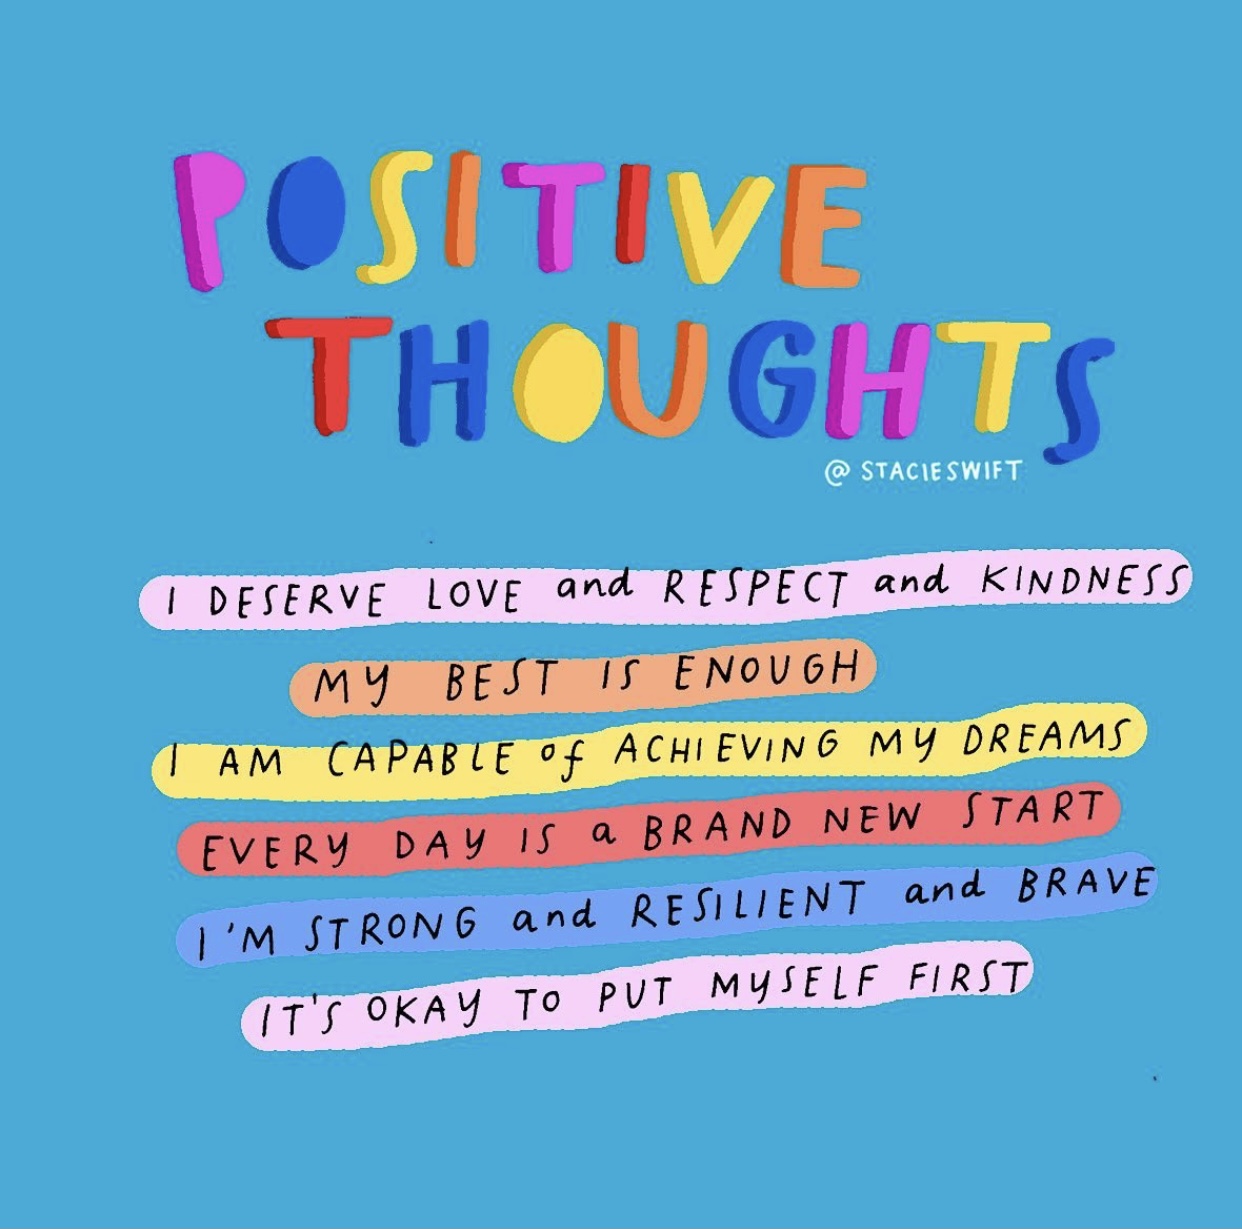 POSITIVE
THOUGHTS
@STACIESWIFT
I DESERVE LOVE and RESPECT and KINDNESS
MY BEST IS ENOUGH
I AM CAPABLE of ACHIEVING MY DREAMS
EVERY DAY IS a BRAND NEW START
I'M STRONG and RESILIENT and BRAVE
IT'S OKAY TO PUT MYSELF FIRST